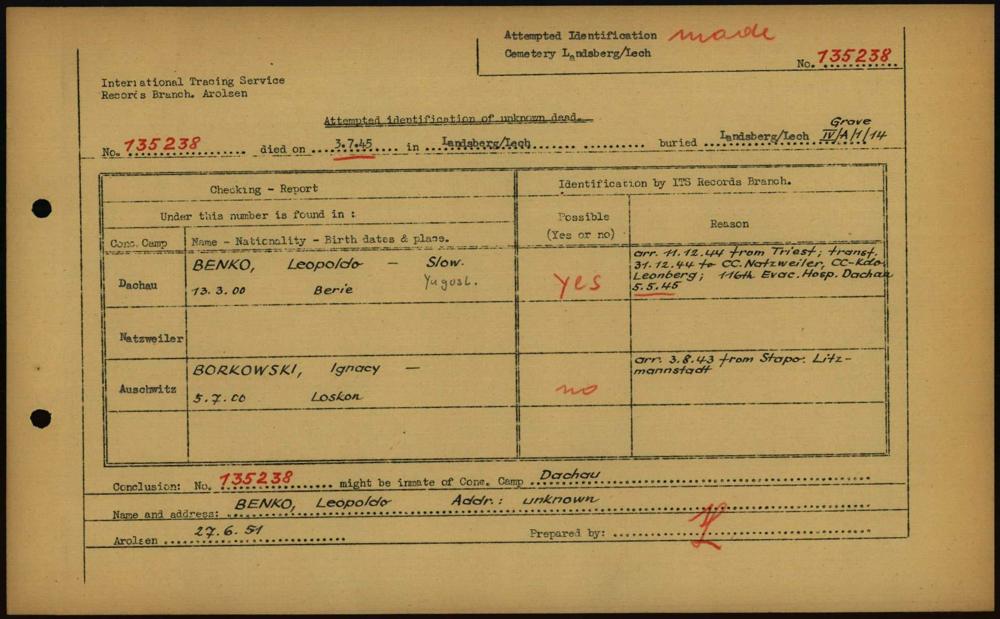 Attempted Identification made
Cemetery Landsberg/Lech
No. 135238
International Tracing Service
Records Branch. Arolsen
Attempted identification of unknown dead.
No. 135238 died on 3.7.45 in Landsberg/Lech buried Landsberg/Lech Grave IV/A/1/14
Checking - Report
Identification by ITS Records Branch.
Under this number is found in :
Possible
(Yes or no)
Reason
Conc. Camp
Name - Nationality - Birth dates & place.
Dachau
BENKO, Leopoldo - Slow.
Yugosl.
13.3.00 Berie
yes
arr. 11.12.44 from Triest; transf.
31.12.44 to CC. Natzweiler, CC-Kdo
Leonberg; 116th Evac. Hosp. Dachau
5.5.45
Natzweiler
Auschwitz
BORKOWSKI, Ignacy -
5.7.00 Loskon
no
arr. 3.8.43 from Stapo. Litz-
mannstadt
Conclusion: No. 135238 might be inmate of Conc. Camp Dachau
Name and address: BENKO, Leopoldo Addr.: unknown
Arolsen 27.6.51 Prepared by: